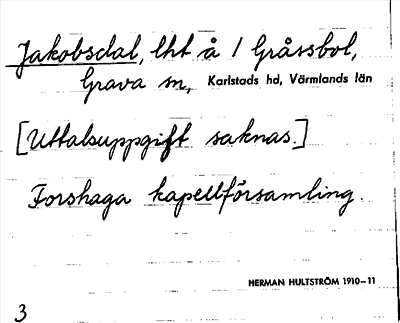 Jakobsdal, lht å / Gråssbol,
Grava sn, Karlstads hd, Värmlands län
[Uttalsuppgift saknas.]
Forshaga kapellförsamling.
HERMAN HULTSTRÖM 1910–11
3